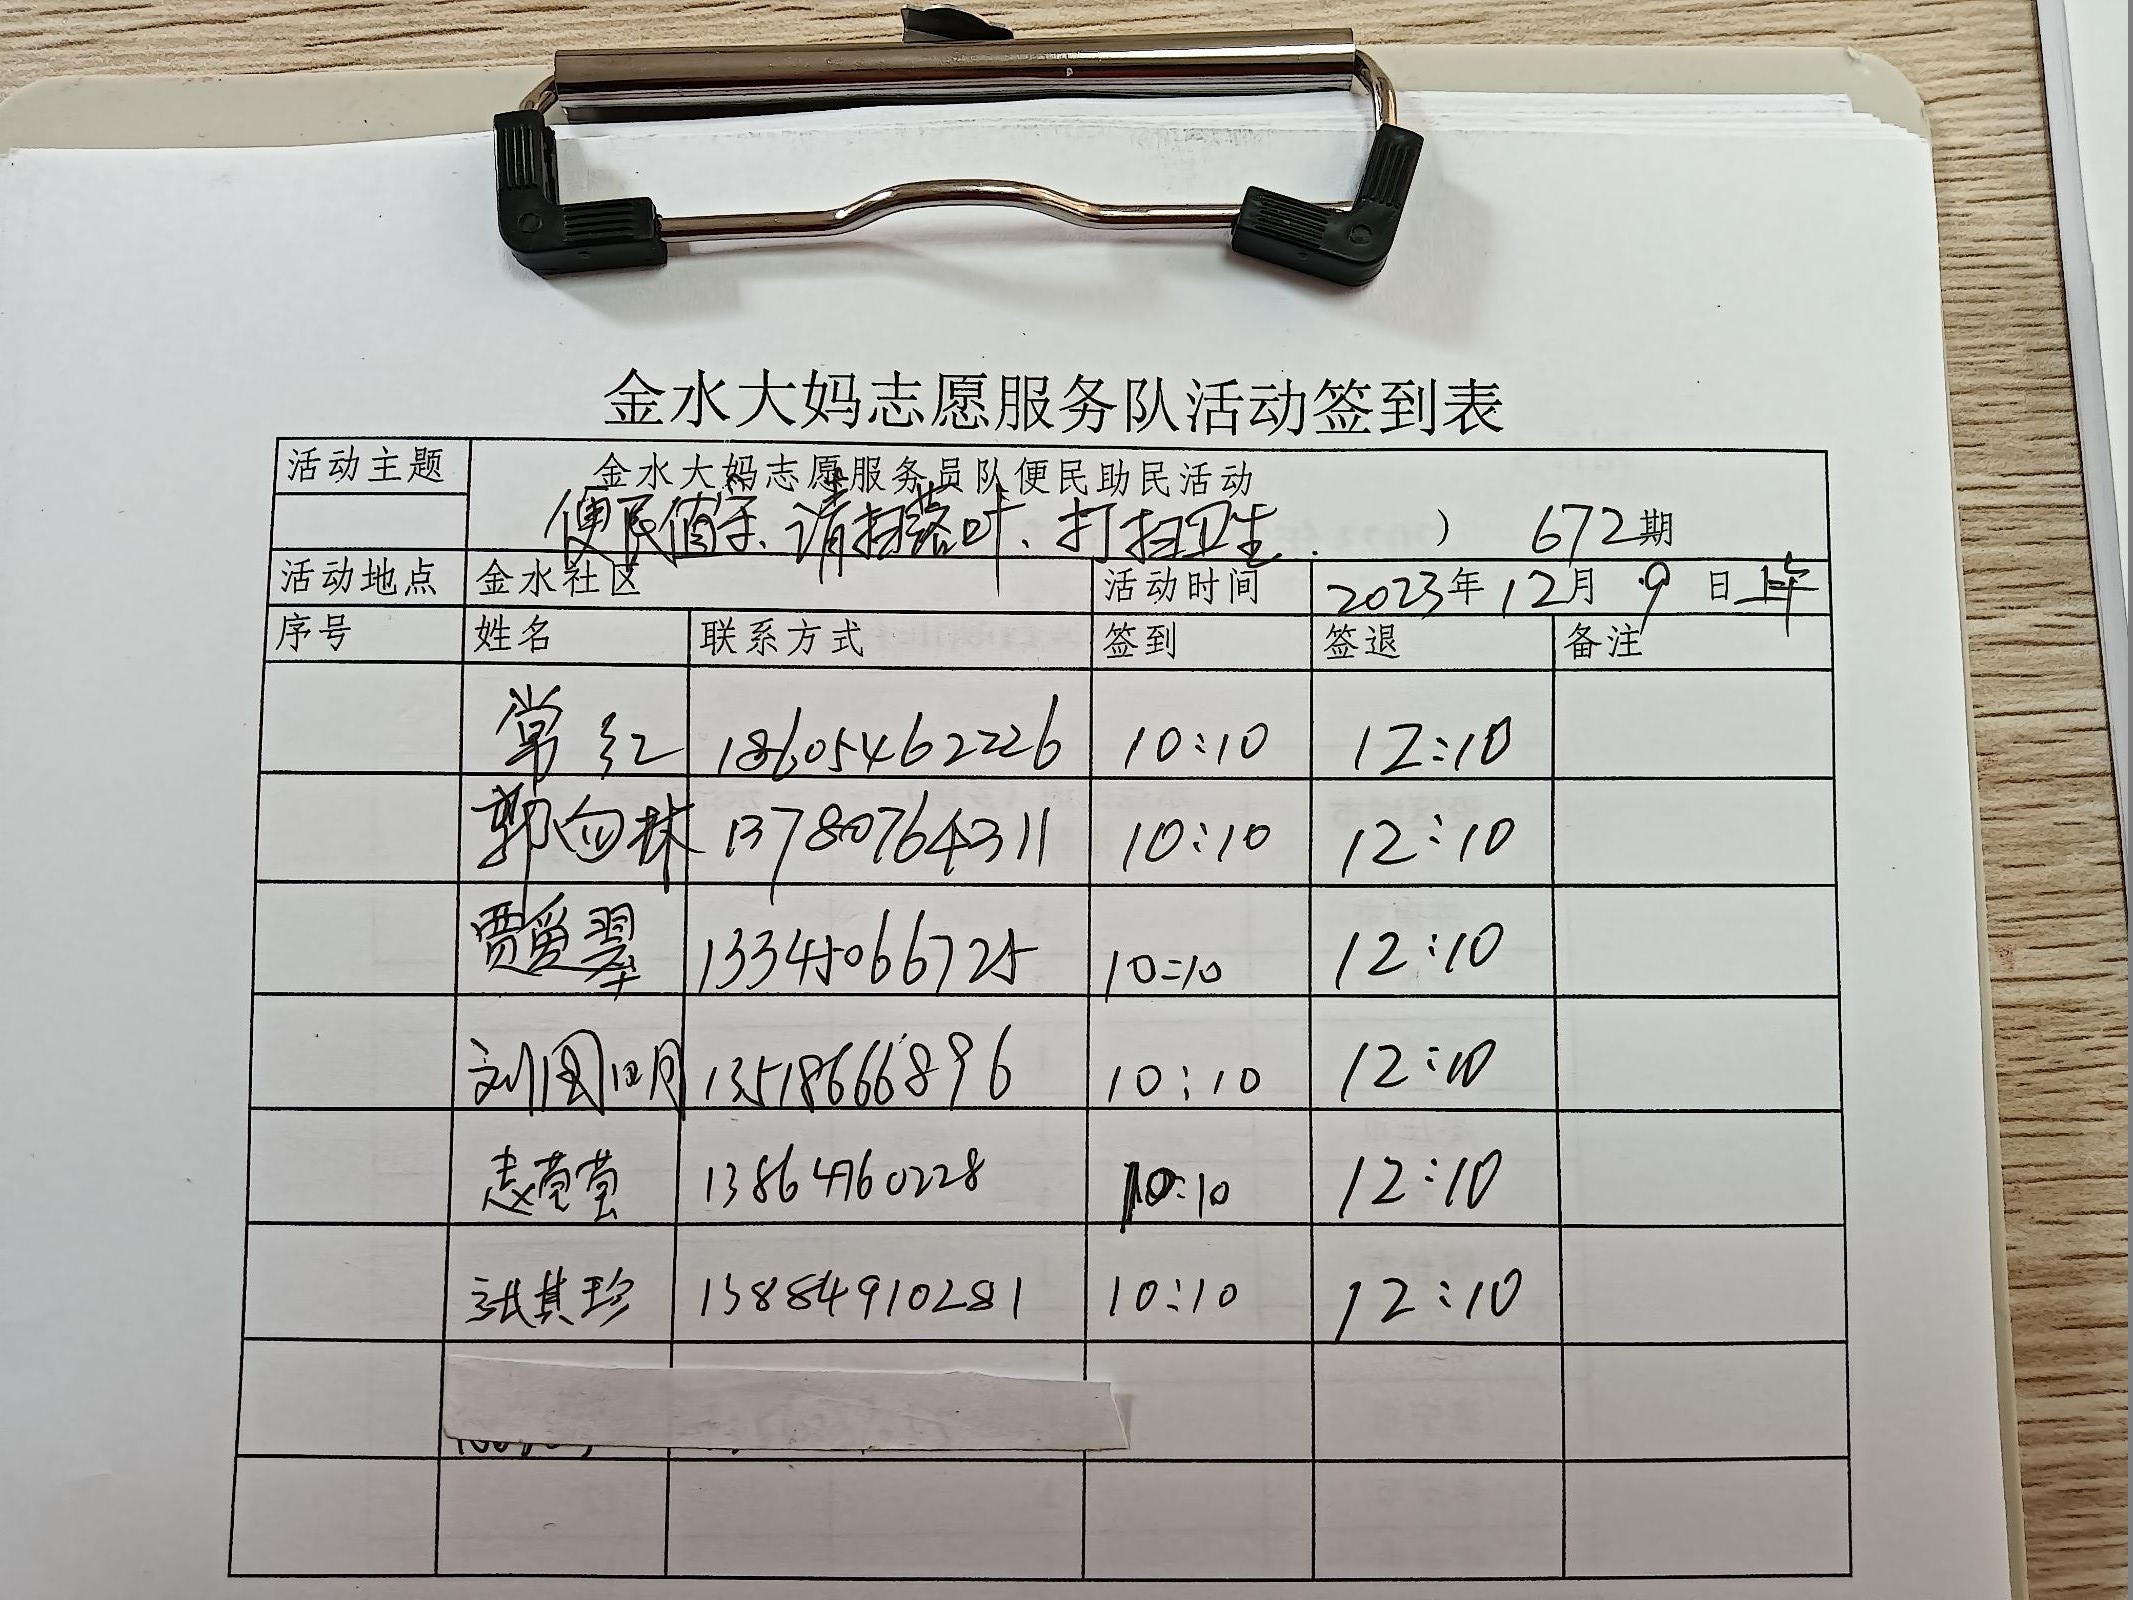 金水大妈志愿服务队活动签到表
活动主题 金水大妈志愿服务员队便民助民活动
便民值守、清扫落叶、打扫卫生. ） 672期
活动地点 金水社区 活动时间 2023年12月9日上午
序号 姓名 联系方式 签到 签退 备注
常红 18605462226 10:10 12:10
郭向林 13780764311 10:10 12:10
贾爱翠 13345066725 10:10 12:10
刘国明 13518666896 10:10 12:10
赵莹莹 13864760228 10:10 12:10
张其珍 13884910281 10:10 12:10